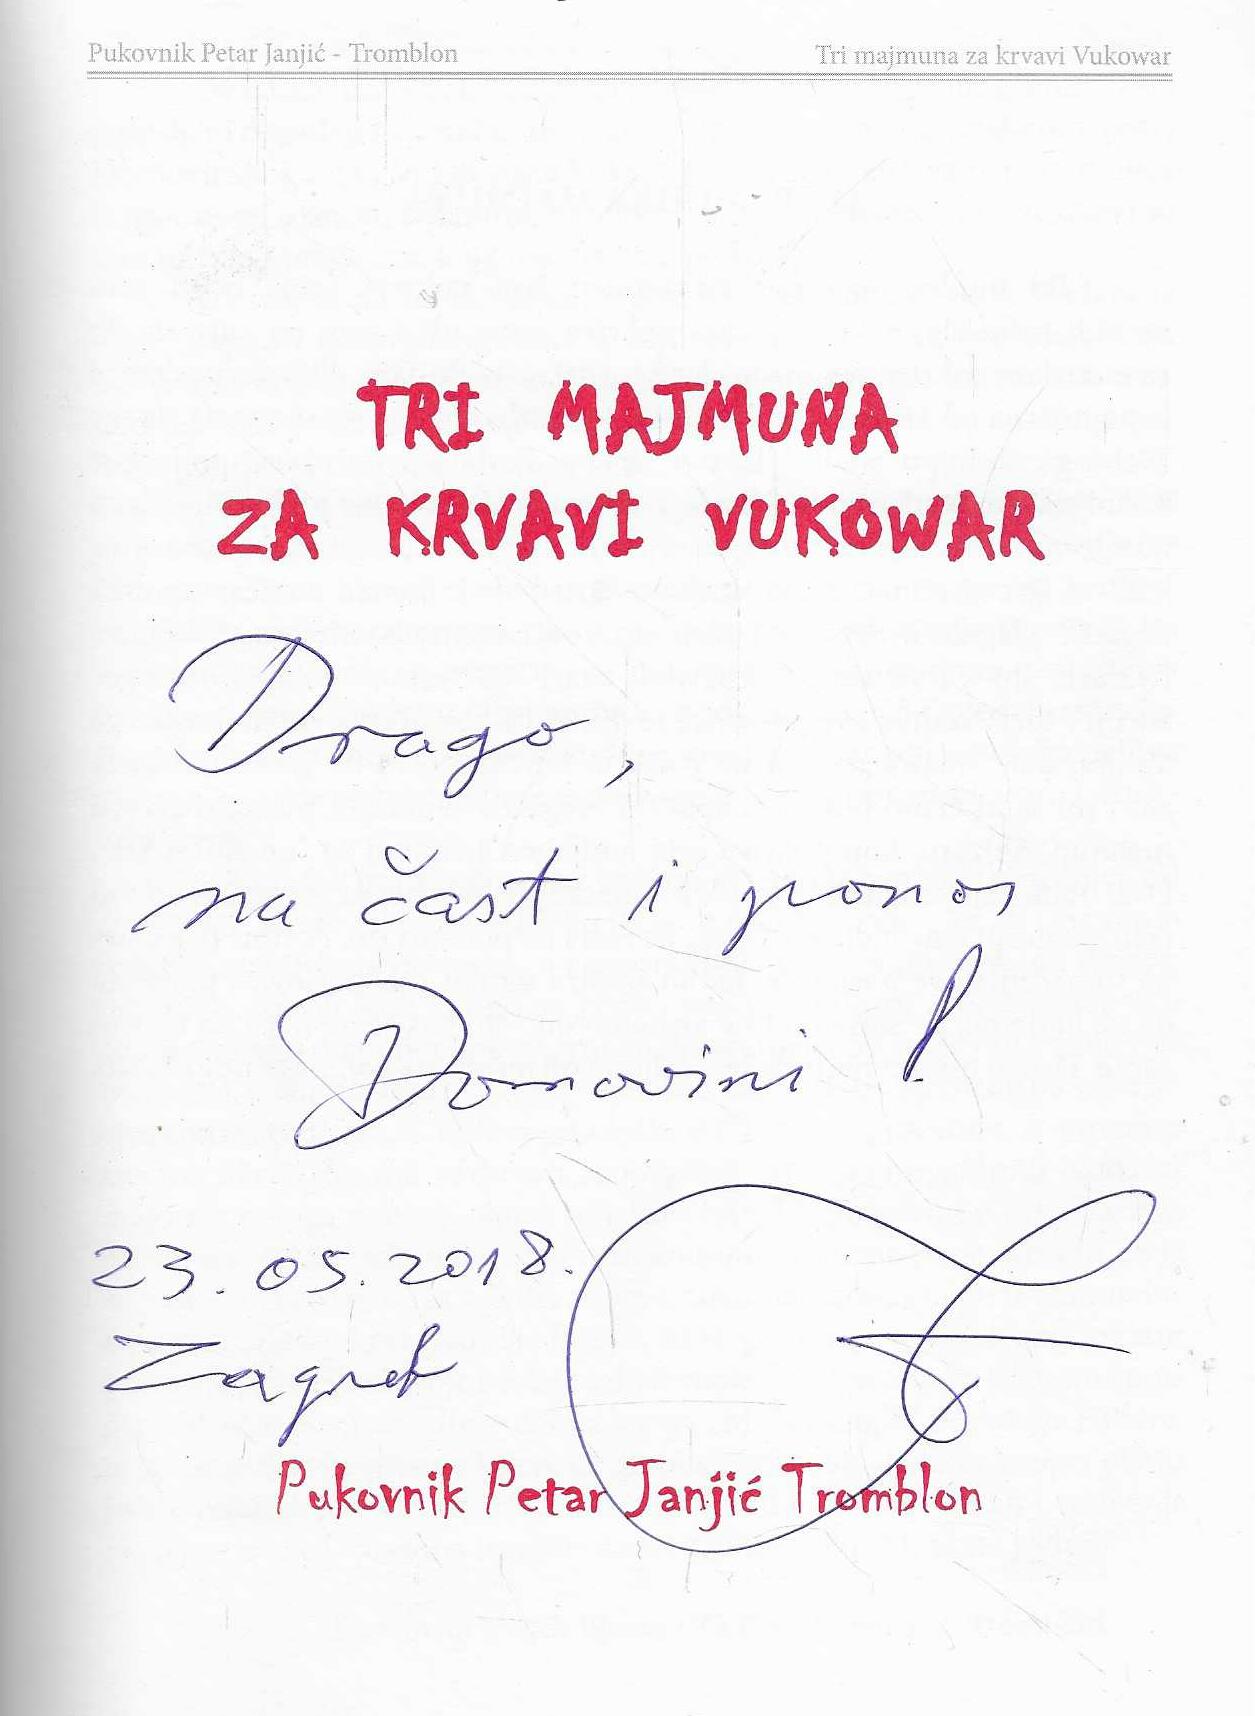 Pukovnik Petar Janjić - Tromblon
Tri majmuna za krvavi Vukowar
TRI MAJMUNA
ZA KRVAVI VUKOWAR
Drago,
na čast i ponos
Domovini!
23.05.2018.
Zagreb
Pukovnik Petar Janjić Tromblon